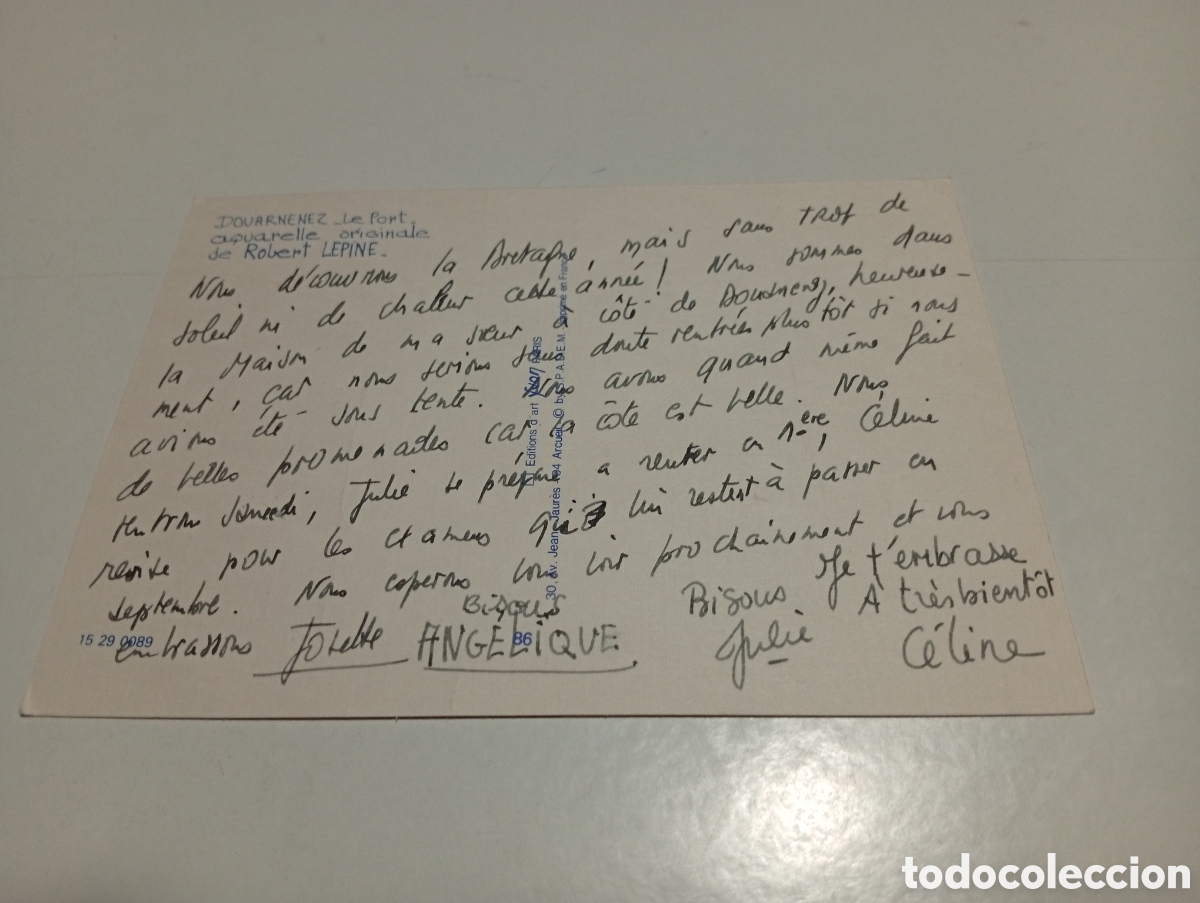 DOUARNENEZ - Le Port.
aquarelle originale
de Robert LEPINE.
Nous découvrons la Bretagne, mais sans trop de
soleil ni de chaleur cette année ! Nous sommes dans
la Maison de ma sœur à côté de Douarnenez, heureuse-
ment, car nous serions sans doute rentrées plus tôt si nous
avions été sous tente. Nous avons quand même fait
de belles promenades car la côte est belle. Nous
rentrons samedi, Julie se prépare a rentrer en 1ère, Céline
révise pour les examens qui lui restent à passer en
septembre. Nous espérons vous voir prochainement et vous
embrassons Josette
Bisous
ANGELIQUE
Bisous
Julie
Je t'embrasse
A très bientôt
Céline
15 29 0089
86
Editions d'art Yvon PARIS
30, Av. Jean-Jaurès - 94 Arcueil - © by S.P.A.D.E.M. Imprimé en France
todocoleccion